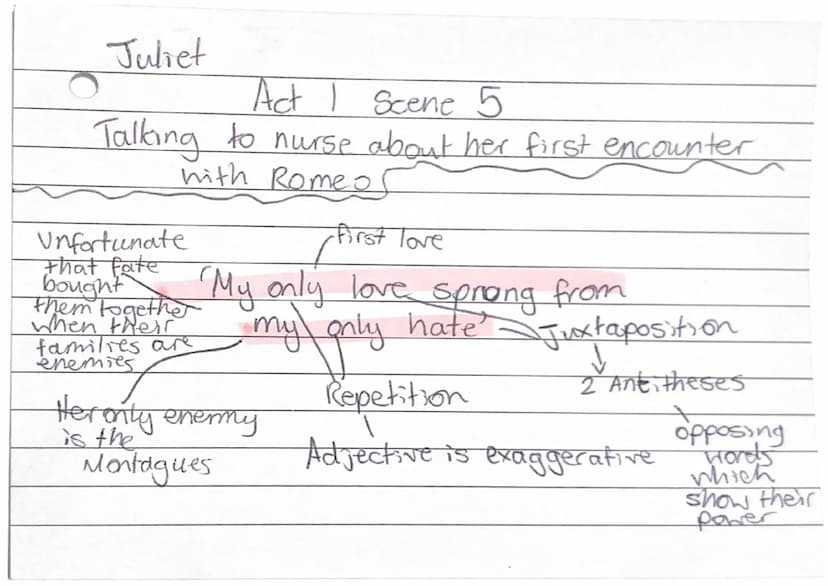 Juliet
Act 1 Scene 5
Talking to nurse about her first encounter
with Romeo
Unfortunate
that fate
bought
them together
when their
families are
enemies
first love
'My only love sprong from
my only hate'
Juxtaposition
2 Antitheses
opposing
words
which
show their
power
Repetition
Adjective is exaggerative
Her only enemmy
is the
Montagues